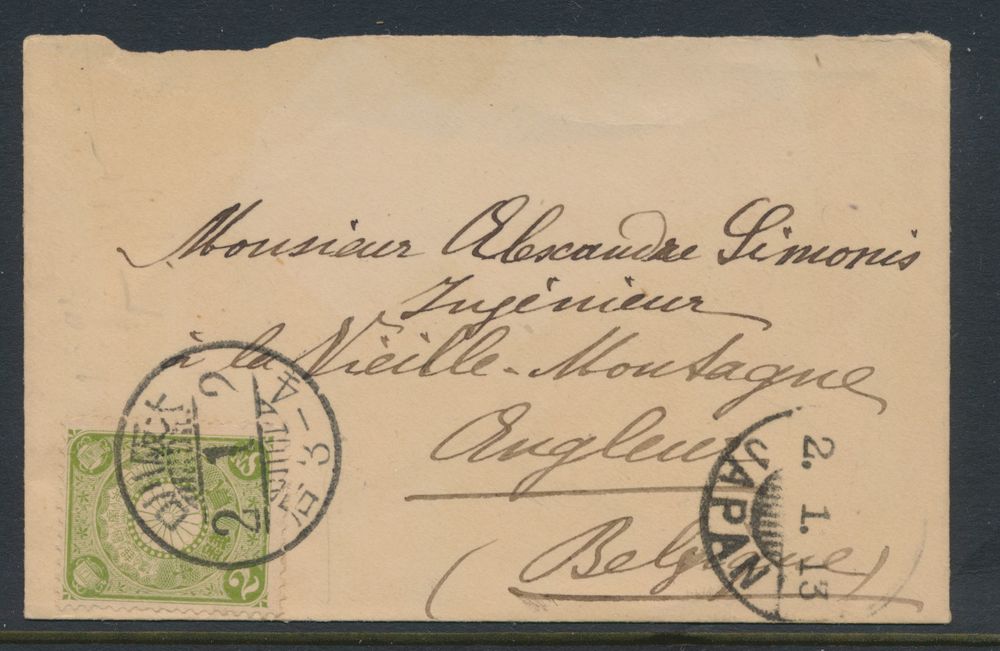 Monsieur Alexandre Simonis
Ingénieur
à la Vieille-Montagne
Angleur
(Belgique)
JAPAN
2. 1. 13
2 1 2
2